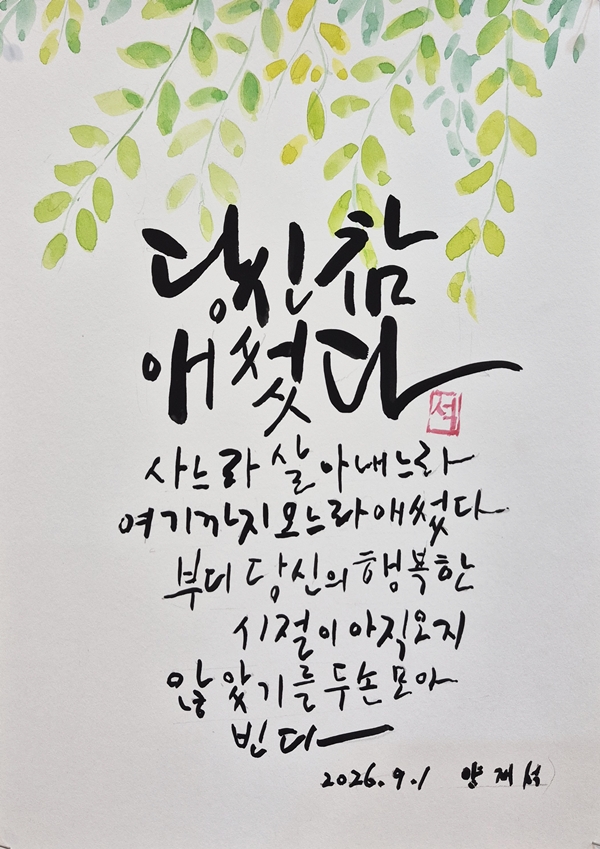 당신 참
애썼다
석
사느라 살아내느라
여기까지 오느라 애썼다
부디 당신의 행복한
시절이 아직 오지
않았기를 두 손 모아
빈다
2026.9.1 양재석